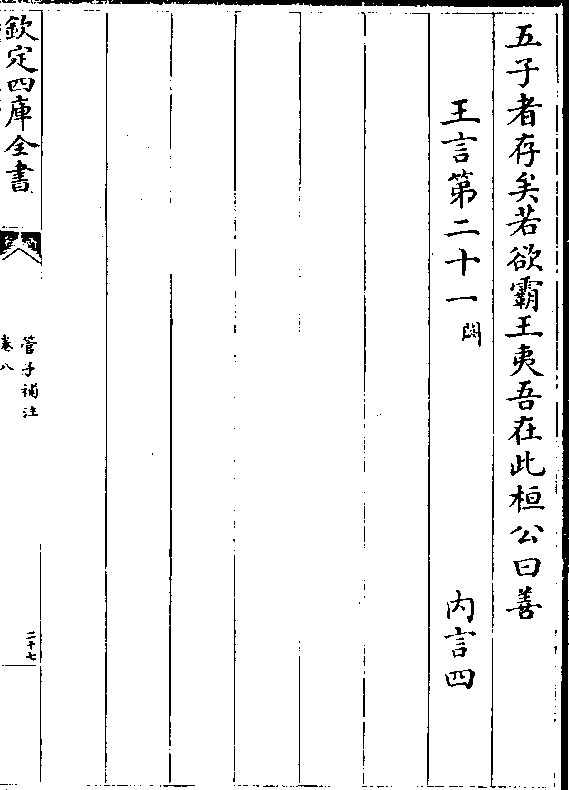 五子者存矣若欲霸王夷吾在此桓公曰善
王言第二十一 闕 内言四
欽定四庫全書
管子補注
卷八
二十七